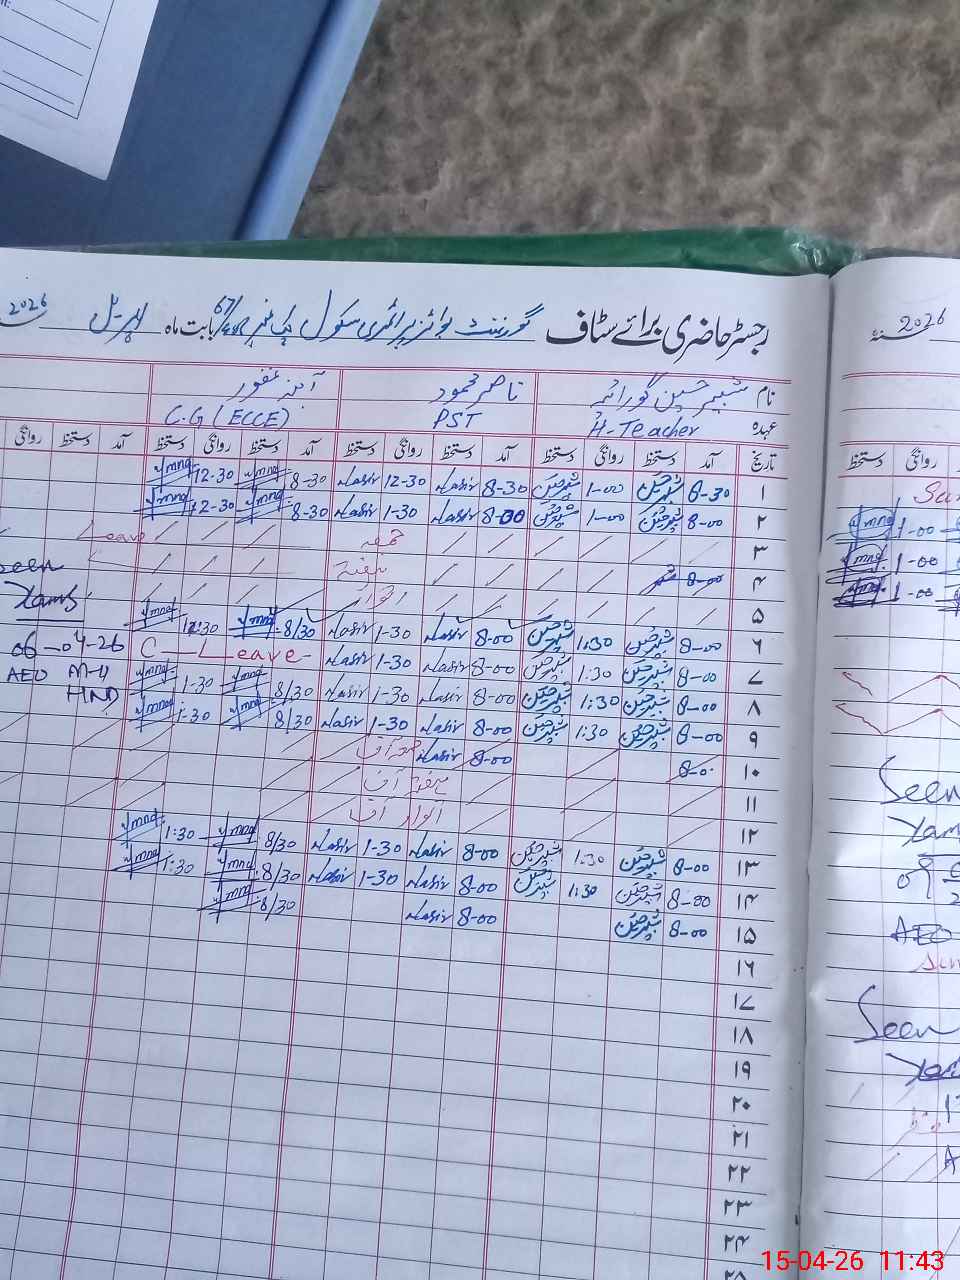 رجسٹر حاضری برائے سٹاف گورنمنٹ بوائز پرائمری سکول چک نمبر 67/ بابت ماہ اپریل 2026
نام شبیر حسین گورائیہ ناصر محمود آمنہ غفور
عہدہ H-Teacher PST C.G (ECCE)
تاریخ آمد دستخط روانگی دستخط آمد دستخط روانگی دستخط آمد دستخط روانگی دستخط آمد دستخط روانگی
۱ 8-30 شبیر حسین 1-00 شبیر حسین 8-30 Nasir 12-30 Nasir 8-30 Ymna 12-30 Ymna
۲ 8-00 شبیر حسین 1-00 شبیر حسین 8-00 Nasir 1-30 Nasir 8-30 Ymna 12-30 Ymna
۳ جمعہ Leave
۴ 8-00 ہفتہ
۵ اتوار
۶ 8-00 شبیر حسین 1:30 شبیر حسین 8-00 Nasir 1-30 Nasir 8/30 Ymna 12:30 Ymna
۷ 8-00 شبیر حسین 1:30 شبیر حسین 8-00 Nasir 1-30 Nasir C-Leave-
۸ 8-00 شبیر حسین 1:30 شبیر حسین 8-00 Nasir 1-30 Nasir 8/30 Ymna 1-30 Ymna
۹ 8-00 شبیر حسین 1:30 شبیر حسین 8-00 Nasir 1-30 Nasir 8/30 Ymna 1:30 Ymna
۱۰ 8-0 8-00 Nasir جمعہ آف
۱۱ ہفتہ آف
۱۲ اتوار آف
۱۳ 8-00 شبیر حسین 1:30 شبیر حسین 8-00 Nasir 1-30 Nasir 8/30 Ymna 1:30 Ymna
۱۴ 8-00 شبیر حسین 1:30 شبیر حسین 8-00 Nasir 1-30 Nasir 8/30 Ymna 1:30 Ymna
۱۵ 8-00 شبیر حسین 8-00 Nasir 8/30 Ymna
۱۶
۱۷
۱۸
۱۹
۲۰
۲۱
۲۲
۲۳
۲۴
۲۵
Seen
06-04-26
AEO M-4
HND
2026
روانگی دستخط
1-00 Ymna
1-00 Ymna
1-00 Ymna
Seen
AEO
Seen
15-04-26 11:43